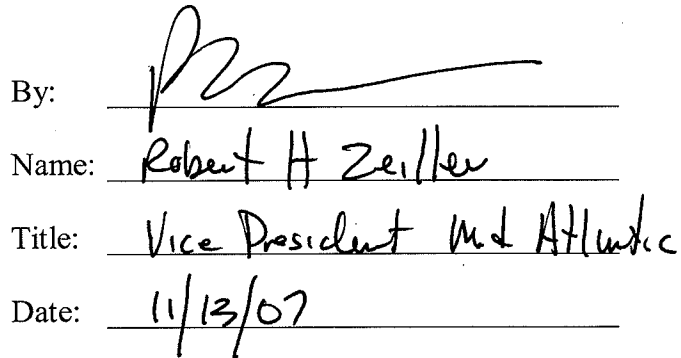 By:
Name: Robert H Zeiller
Title: Vice President Mid Atlantic
Date: 11/13/07